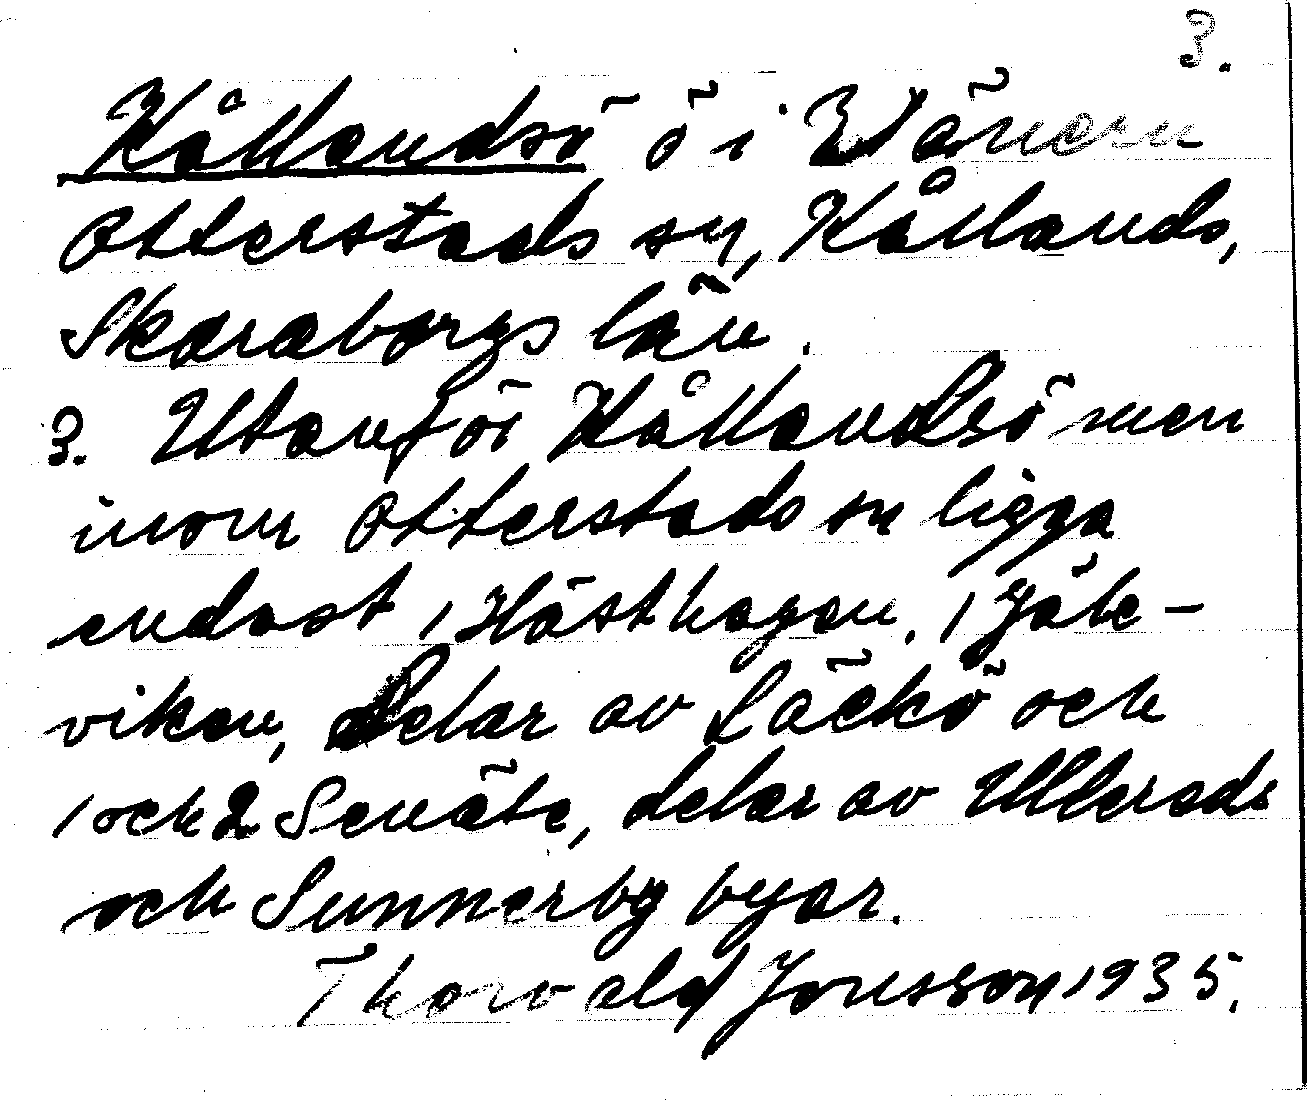 3.
Kållandsö ö i Vänern
Otterstads sn, Kållands,
Skaraborgs län.
3. Utanför Kållandsö men
inom Otterstads sn ligga
endast 1 Hästhagen, 1 Gäle-
viken, delar av Läckö och
1 och 2 Senäte, delar av Ullersds
och Sunnerby byar.
Thorvald Jonsson 1935.